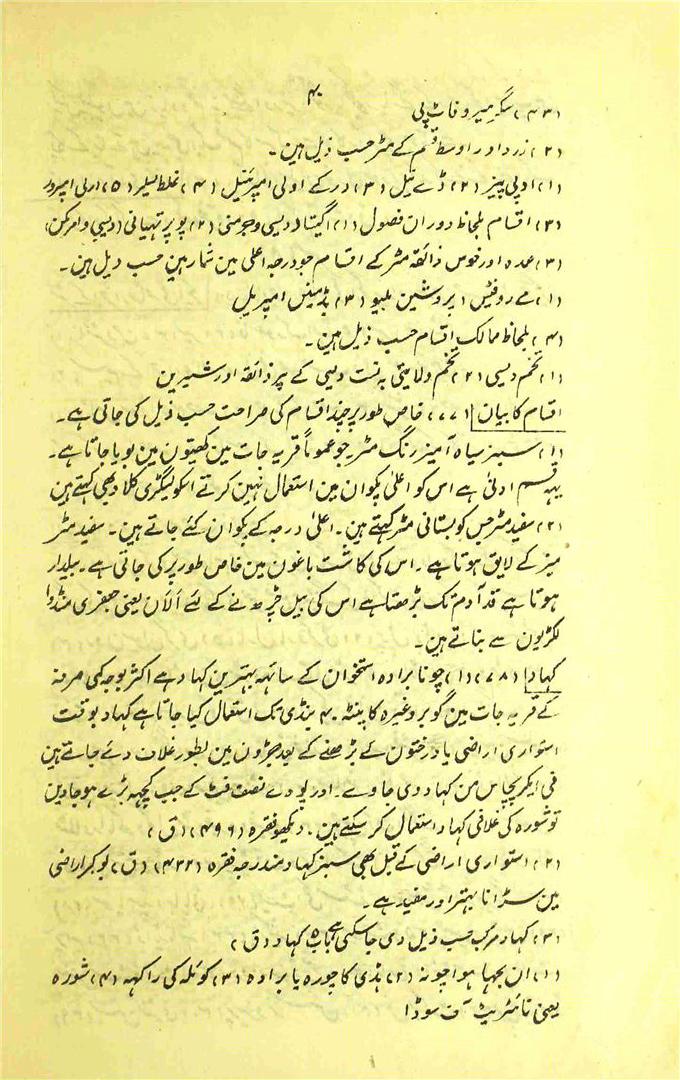 ۴۰
(۴۳) سگر میر و فاٹ پی
(۲) زرد اور اوسط قسم کے مٹر حسب ذیل ہین۔
(۱) ادپی پینر (۲) ڈے تیل (۳) در کے اولی امپرئیل (۴) غلط سیلر (۵) ارلی امپرور
(۳) اقسام بلحاظ دوران فصول (۱) اگیتا دیسی و جرمنی (۲) پویر تہیانی (دیسی و امرکن)
(۳) عمدہ اور خوس ذائقہ مٹر کے اقسام جو درجہ اعلی مین شمار ہین حسب ذیل ہین۔
(۱) مے روفیٹس (۲) پروشین بلیو (۳) پڈمینس امپریل
(۴) بلحاظ ممالک اقسام حسب ذیل ہین۔
(۱) تخم دیسی (۲) تخم ولایتی بہ نسبت دیسی کے پر ذائقہ اور شیرین
اقسام کا بیان (۷۷) خاص طور پر چند اقسام کی صراحت حسب ذیل کی جاتی ہے۔
(۱) سبز سیاہ آمیز رنگ مٹر جو عموماً قریہ جات مین کھیتون مین بویا جاتا ہے۔
یہہ قسم ادنیٰ ہے اس کو اعلیٰ پکوان مین استعمال نہین کرتے اسکو لیگڑی کلاو بھی کہتے ہین
(۲) سفید مٹر جس کو بستانی مٹر کہتے ہین۔ اعلیٰ درجہ کے پکوان کئے جاتے ہین۔ سفید مٹر
میز کے لایق ہوتا ہے۔ اس کی کاشت باغون مین خاص طور پر کی جاتی ہے۔ بیلدار
ہوتا ہے قد آدم تک بڑھتا ہے اس کی بیل چڑھنے کے لئے الان یعنی جعفری منڈوا
لکڑیون سے بناتے ہین۔
کہاد (۷۸) (۱) چونا برادہ استخوان کے ساتہہ بہترین کہاد ہے اکثر بوجہ کمی صرفہ
کے قریہ جات مین گوبر وغیرہ کا بنٹہ ۴۰ بنڈی تک استعمال کیا جاتا ہے کہاد بوقت
استواری اراضی یا درختون کے بڑھنے کے بعد جڑون مین بطور غلاف دئے جاتے ہین
فی ایکر پچاس من کہاد دی جاوے۔ اور پودے نصف فٹ کے جب کچہہ بڑے ہو جاوین
تو شورہ کی غلافی کہاد استعمال کر سکتے ہین۔ دیکھو فقرہ (۴۹۶) (ق)
(۲) استواری اراضی کے قبل بھی سبز کہاد مندرجہ فقرہ (۴۳۲) (ق) بو کر اراضی
مین سڑانا بہتر اور مفید ہے۔
(۳) کہاد مرکب حسب ذیل دی جا سکتی ہے باب ۵ کہاد (ق)
(۱) ان بجہا ہوا چونہ (۲) ہڈی کا چورہ یا برادہ (۳) کوئلہ کی راکہہ (۴) شورہ
یعنی نائٹریٹ آف سوڈا